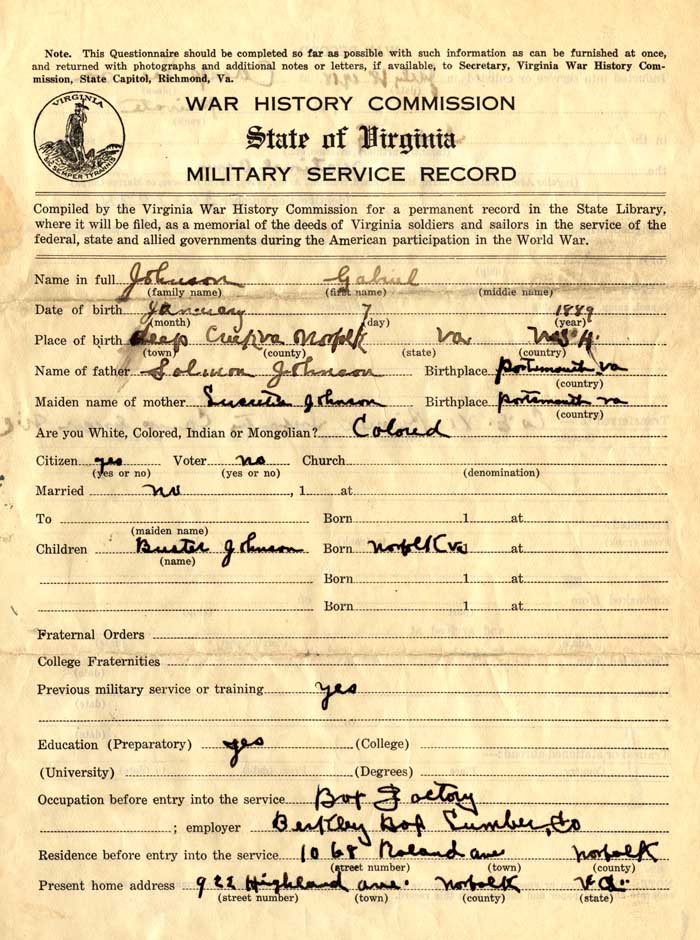 Note. This Questionnaire should be completed so far as possible with such information as can be furnished at once,
and returned with photographs and additional notes or letters, if available, to Secretary, Virginia War History Com-
mission, State Capitol, Richmond, Va.
VIRGINIA
SIC SEMPER TYRANNIS
WAR HISTORY COMMISSION
State of Virginia
MILITARY SERVICE RECORD
Compiled by the Virginia War History Commission for a permanent record in the State Library,
where it will be filed, as a memorial of the deeds of Virginia soldiers and sailors in the service of the
federal, state and allied governments during the American participation in the World War.
Name in full Johnson Gabriel
(family name) (first name) (middle name)
Date of birth January 7 1889
(month) (day) (year)
Place of birth deep Creek va Norfolk va
(town) (county) (state) (country)
Name of father Solmon Johnson Birthplace Portsmouth va
(country)
Maiden name of mother Lucretia Johnson Birthplace Portsmouth va
(country)
Are you White, Colored, Indian or Mongolian? Colored
Citizen yes Voter no Church
(yes or no) (yes or no) (denomination)
Married no , 1 at
To Born 1 at
(maiden name)
Children Buster Johnson Born Norfolk va 1 at
(name)
Born 1 at
Born 1 at
Fraternal Orders
College Fraternities
Previous military service or training yes
Education (Preparatory) yes (College)
(University) (Degrees)
Occupation before entry into the service Box Factory
; employer Berkley Box Lumber Co
Residence before entry into the service 1068 Roland ave Norfolk
(street number) (town) (county)
Present home address 922 Highland ave. Norfolk va.
(street number) (town) (county) (state)